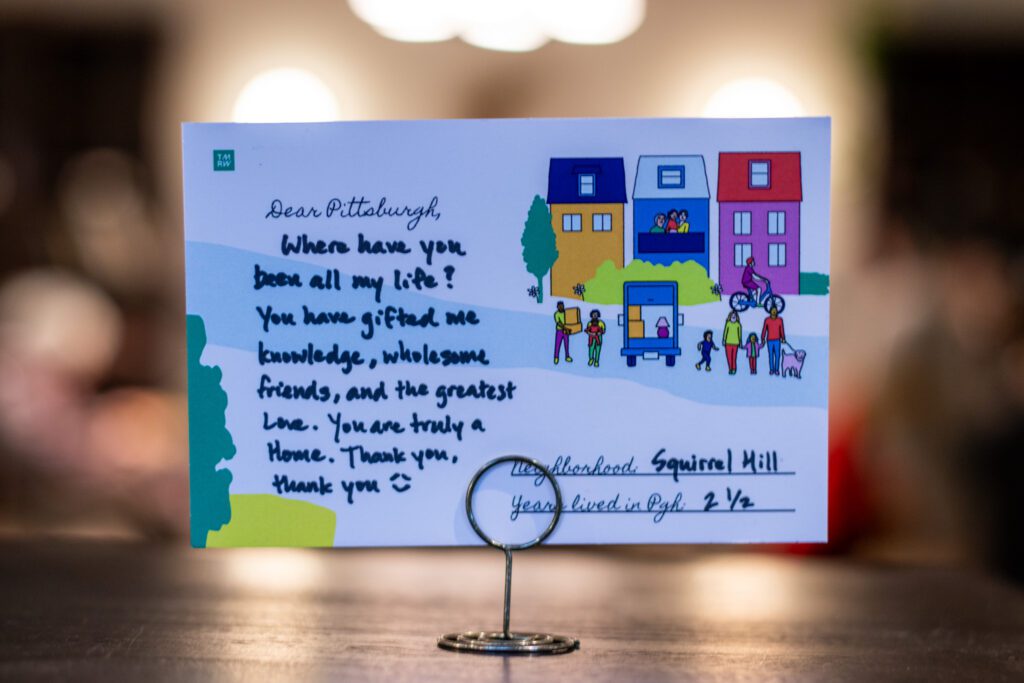 TM
RW
Dear Pittsburgh,
Where have you
been all my life?
You have gifted me
knowledge, wholesome
friends, and the greatest
Love. You are truly a
Home. Thank you,
thank you
Neighborhood: Squirrel Hill
Years lived in Pgh: 2 1/2